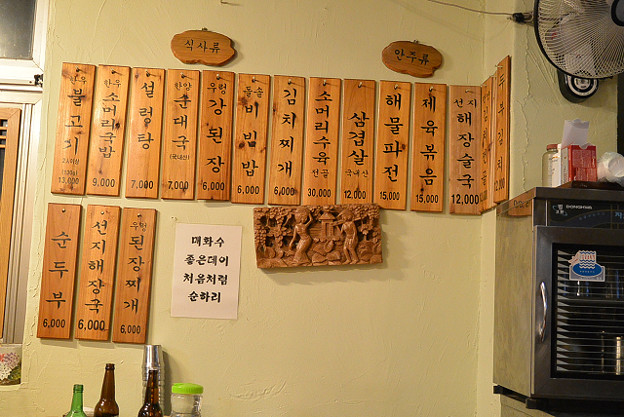 식사류
안주류
한우 불고기 2인이상 13,000
한우 소머리국밥 9,000
설렁탕 7,000
순대국 (국내산) 7,000
우렁 강된장 6,000
돌솥 비빔밥 6,000
김치찌개 6,000
소머리수육 30,000
삼겹살 국내산 12,000
해물파전 15,000
제육볶음 15,000
선지 해장술국 12,000
두부김치
순두부 6,000
선지해장국 6,000
우렁 된장찌개 6,000
매화수
좋은데이
처음처럼
순하리